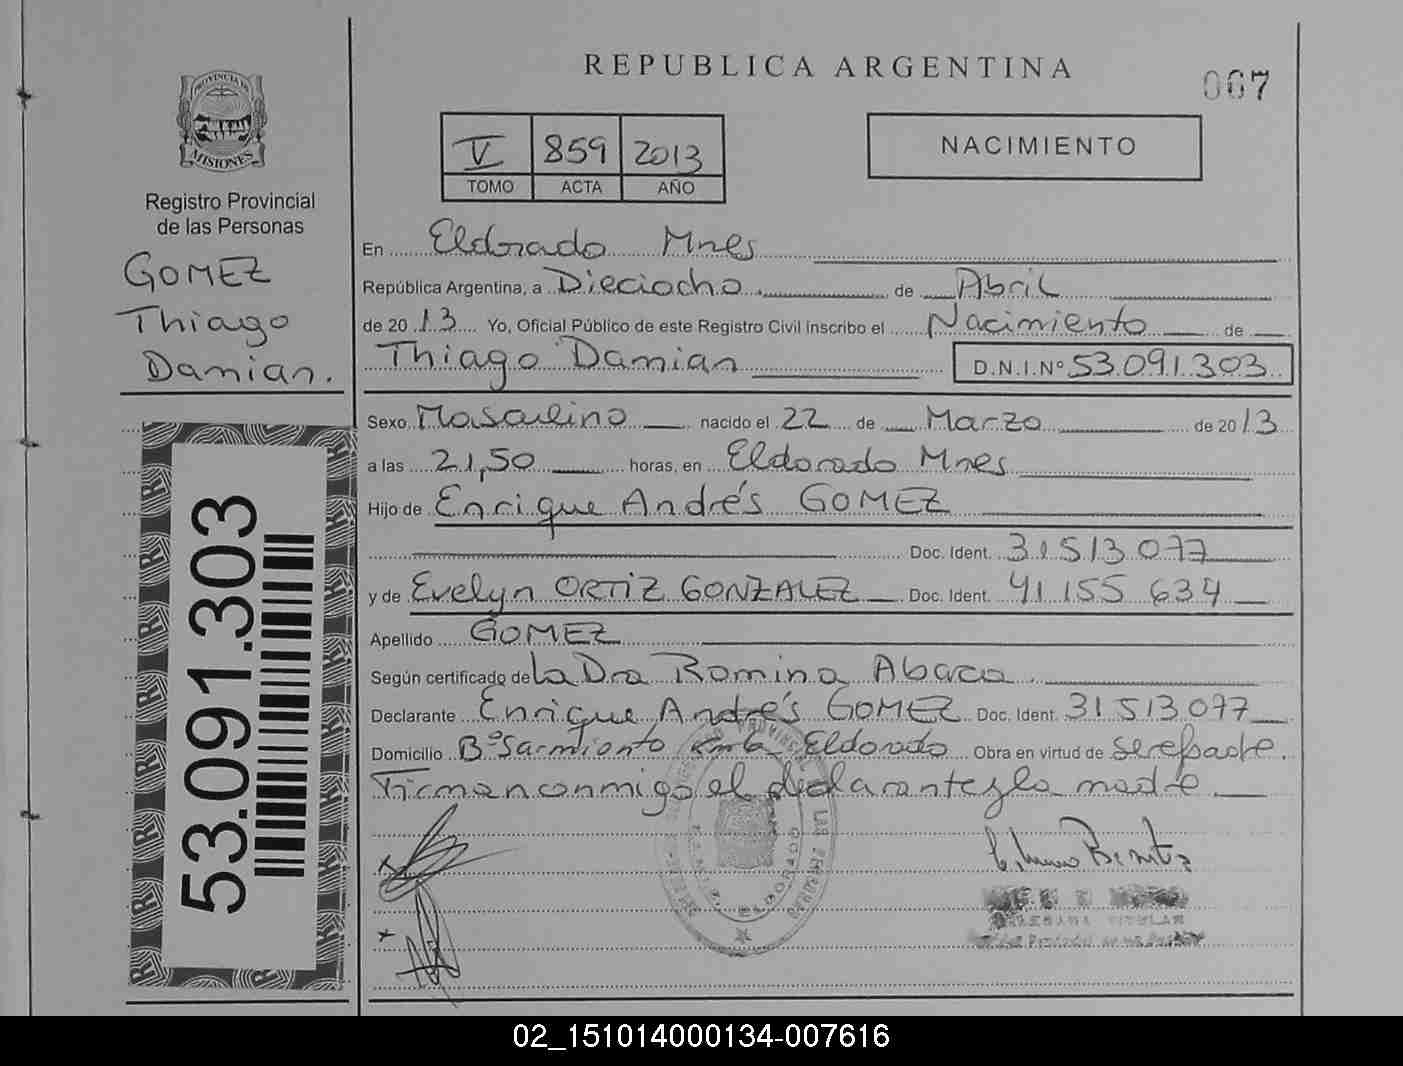 REPUBLICA ARGENTINA
067
PROVINCIA DE
MISIONES
Registro Provincial
de las Personas
GOMEZ
Thiago
Damian.
53.091.303
V 859 2013
TOMO ACTA AÑO
NACIMIENTO
En Eldorado Mnes
República Argentina, a Dieciocho de Abril
de 2013 Yo, Oficial Público de este Registro Civil inscribo el Nacimiento de
Thiago Damian D.N.I.Nº 53.091.303
Sexo Masculino nacido el 22 de Marzo de 2013
a las 21,50 horas, en Eldorado Mnes
Hijo de Enrique Andrés GOMEZ
Doc. Ident. 31513077
y de Evelyn ORTIZ GONZALEZ Doc. Ident. 41 155 634
Apellido GOMEZ
Según certificado de La Dra Romina Abaca.
Declarante Enrique Andrés GOMEZ Doc. Ident. 31513077
Domicilio Bº Sarmiento km 6 Eldorado Obra en virtud de ser el padre.
Firman conmigo el declarante y la madre.
Benitez
DELEGADA TITULAR
02_151014000134-007616